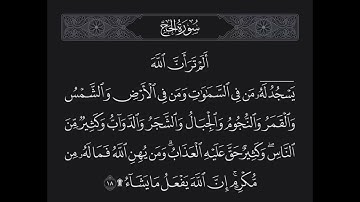 سُورَةُ الحَجِّ
أَلَمْ تَرَ أَنَّ ٱللَّهَ
يَسْجُدُ لَهُۥ مَن فِى ٱلسَّمَـٰوَٰتِ وَمَن فِى ٱلْأَرْضِ وَٱلشَّمْسُ
وَٱلْقَمَرُ وَٱلنُّجُومُ وَٱلْجِبَالُ وَٱلشَّجَرُ وَٱلدَّوَآبُّ وَكَثِيرٌ مِّنَ
ٱلنَّاسِ ۖ وَكَثِيرٌ حَقَّ عَلَيْهِ ٱلْعَذَابُ ۗ وَمَن يُهِنِ ٱللَّهُ فَمَا لَهُۥ مِن
مُّكْرِمٍ ۚ إِنَّ ٱللَّهَ يَفْعَلُ مَا يَشَآءُ ۩ ١٨